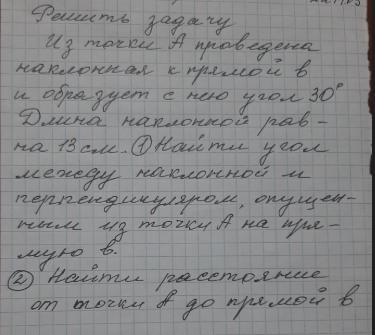 Решить задачу
Из точки А проведена
наклонная к прямой в
и образует с нею угол 30°
Длина наклонной рав-
на 13 см. ① Найти угол
между наклонной и
перпендикуляром, опущен-
ным из точки А на пря-
мую в.
② Найти расстояние
от точки А до прямой в